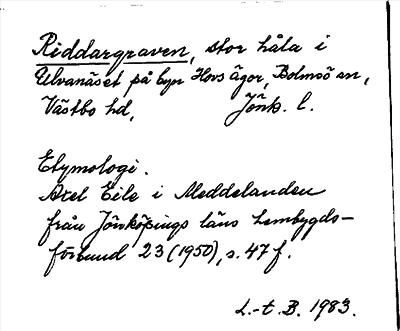 Riddargraven, stor håla i
Ulvanäset på byn Hovs ägor, Bolmsö sn,
Västbo hd, Jönk. l.
Etymologi.
Axel Eile i Meddelanden
från Jönköpings läns hembygds-
förbund 23 (1950), s. 47 f.
L.-t. B. 1983.